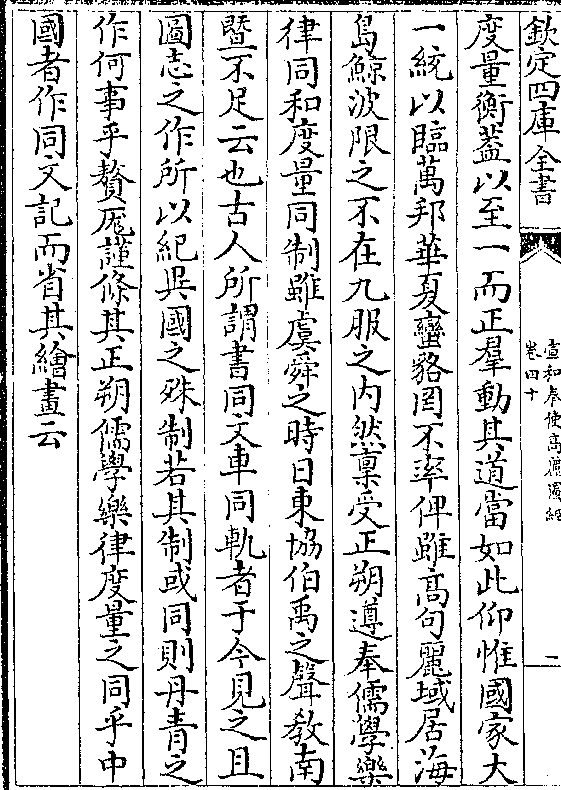 欽定四庫全書
宣和奉使高麗圖經
卷四十
二
度量衡蓋以至一而正羣動其道當如此仰惟國家大
一統以臨萬邦華夏蠻貉罔不率俾雖髙句麗域居海
島鯨波限之不在九服之内然稟受正朔遵奉儒學樂
律同和度量同制雖虞舜之時日東協伯禹之聲教南
暨不足云也古人所謂書同文車同軌者于今見之且
圖志之作所以紀異國之殊制若其制或同則丹青之
作何事乎贅厖謹條其正朔儒學樂律度量之同乎中
國者作同文記而省其繪畫云